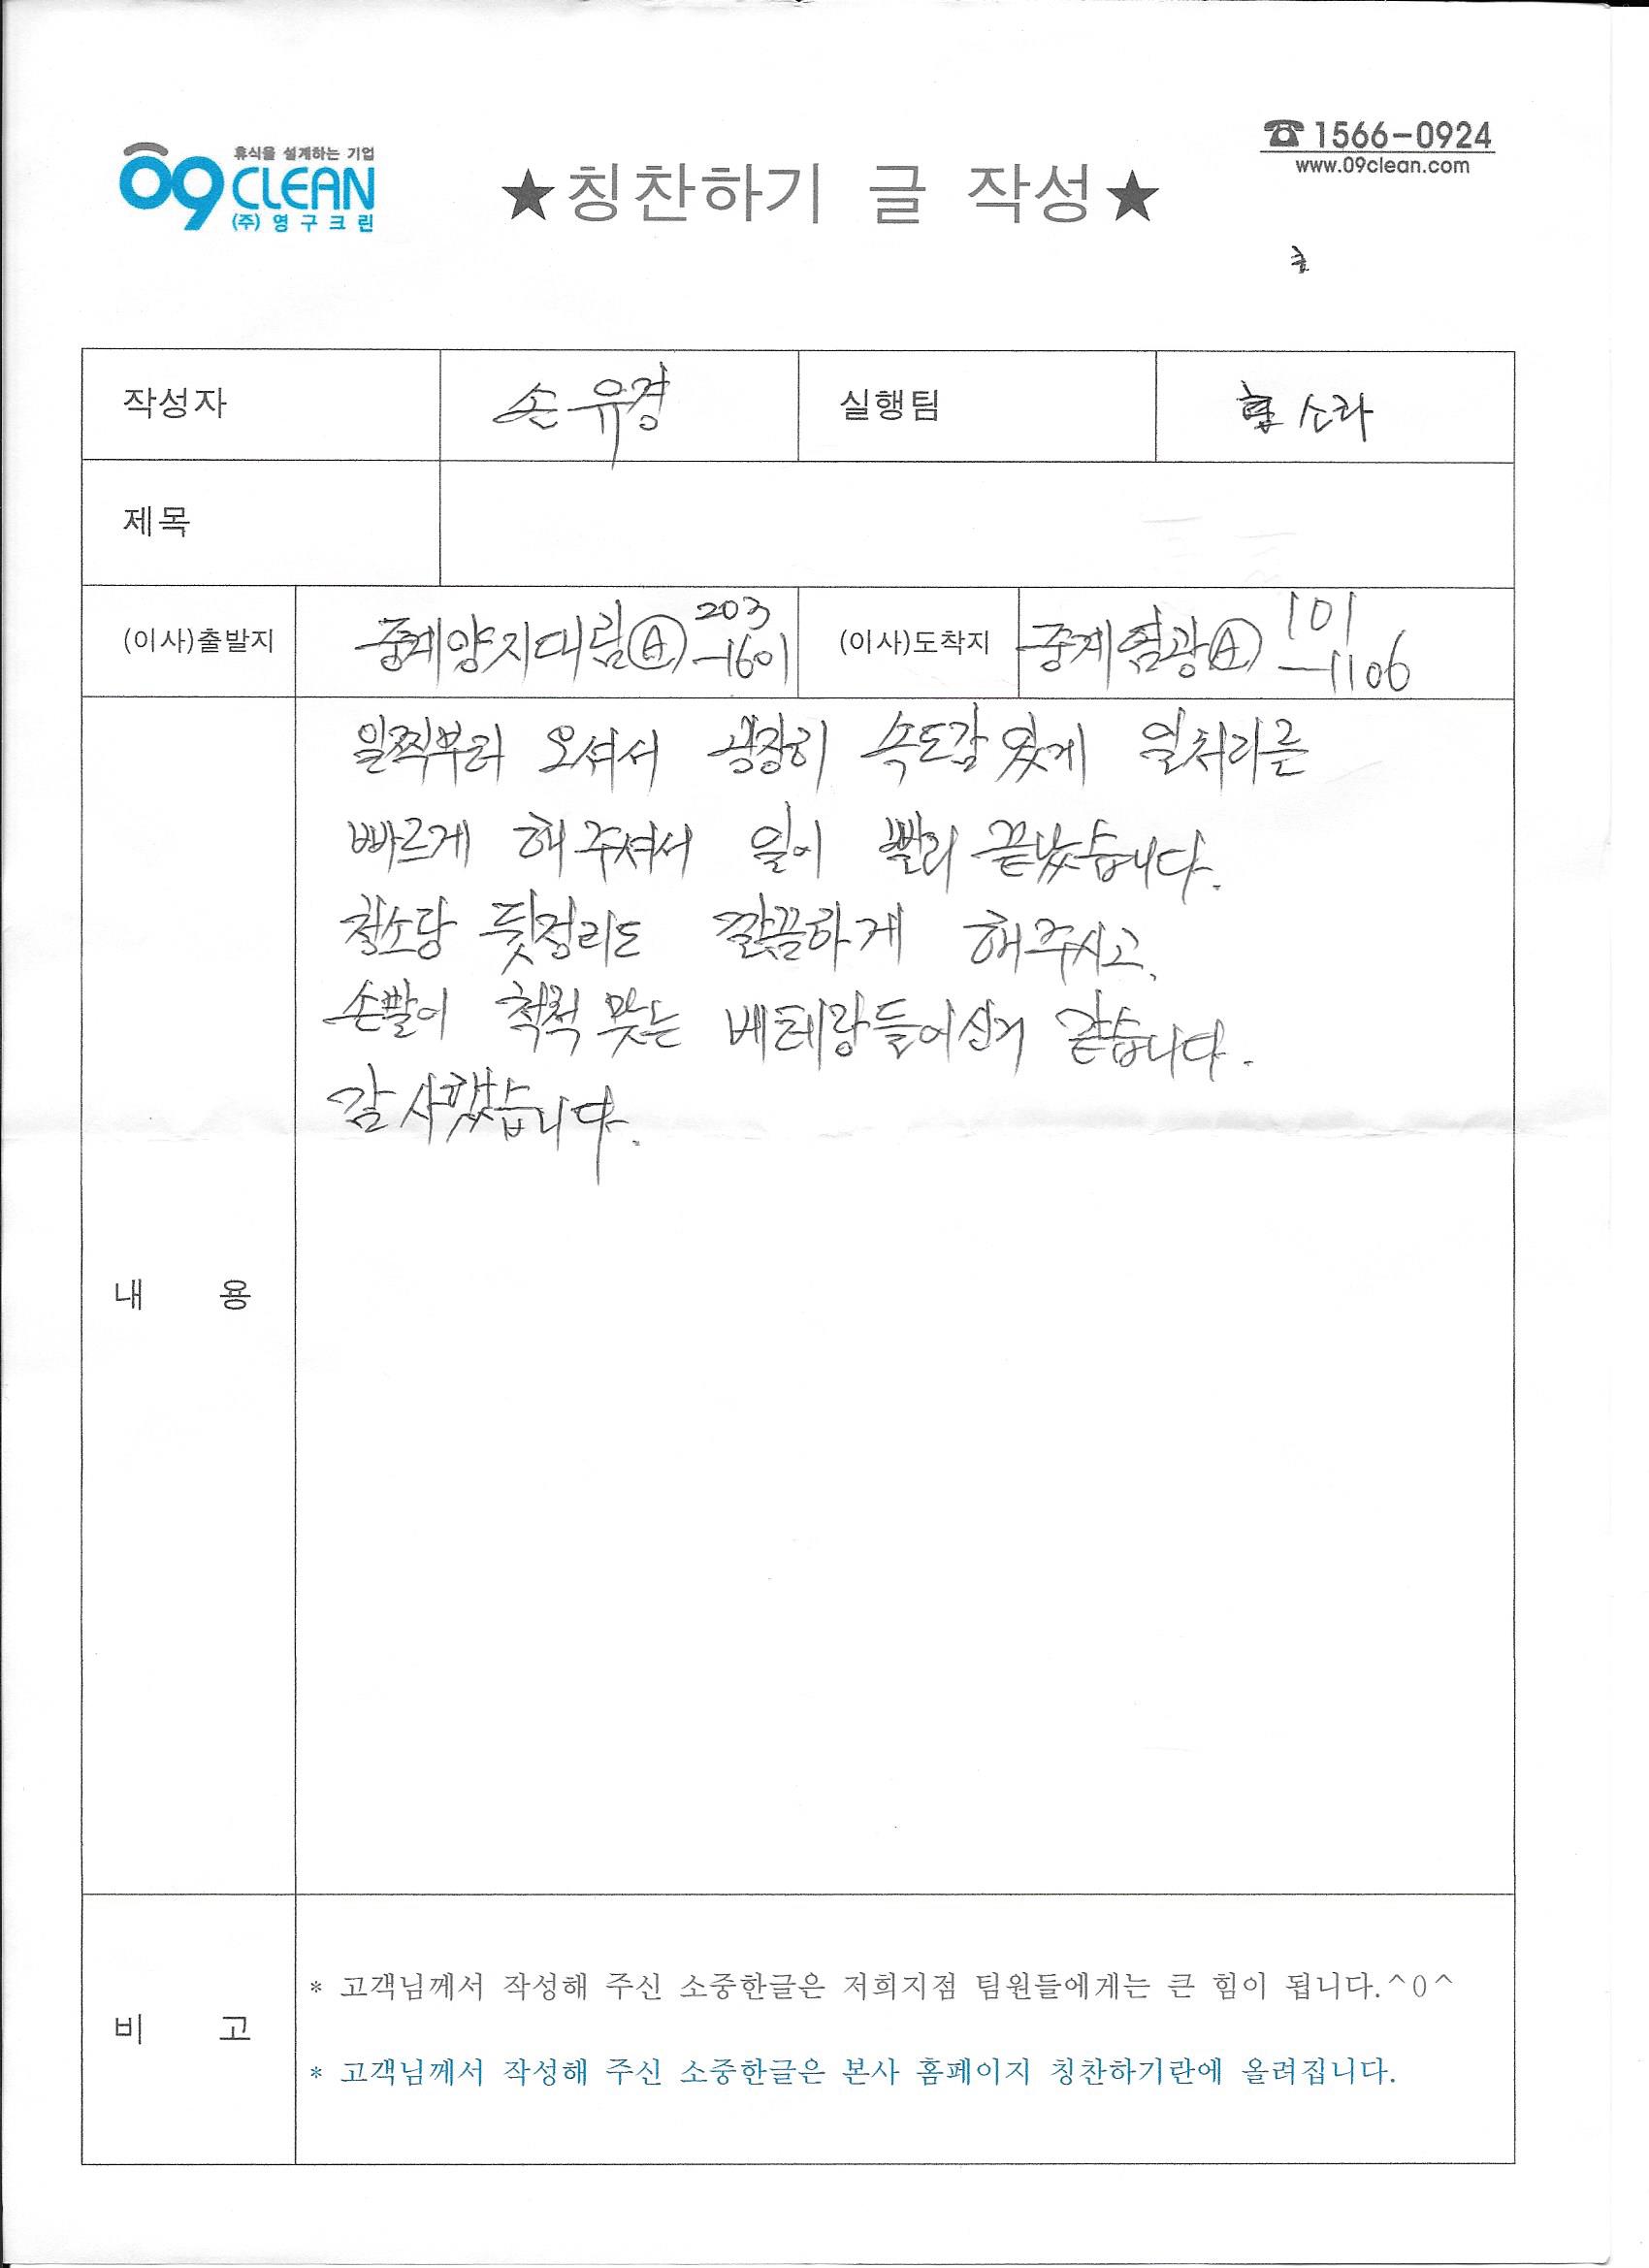 휴식을 설계하는 기업
09 CLEAN
(주)영구크린
★칭찬하기 글 작성★
☎1566-0924
www.09clean.com
작성자 손유경 실행팀 소라
제목
(이사)출발지 중계양지대림Ⓐ 203-1601 (이사)도착지 중계염광Ⓐ 101-1106
일찍부터 오셔서 굉장히 속도감 있게 일처리를
빠르게 해주셔서 일이 빨리 끝났습니다.
청소랑 뒷정리도 깔끔하게 해주시고,
손발이 척척 맞는 베테랑들이신거 같습니다.
감사했습니다.
내 용
비 고
* 고객님께서 작성해 주신 소중한글은 저희지점 팀원들에게는 큰 힘이 됩니다.^0^
* 고객님께서 작성해 주신 소중한글은 본사 홈페이지 칭찬하기란에 올려집니다.